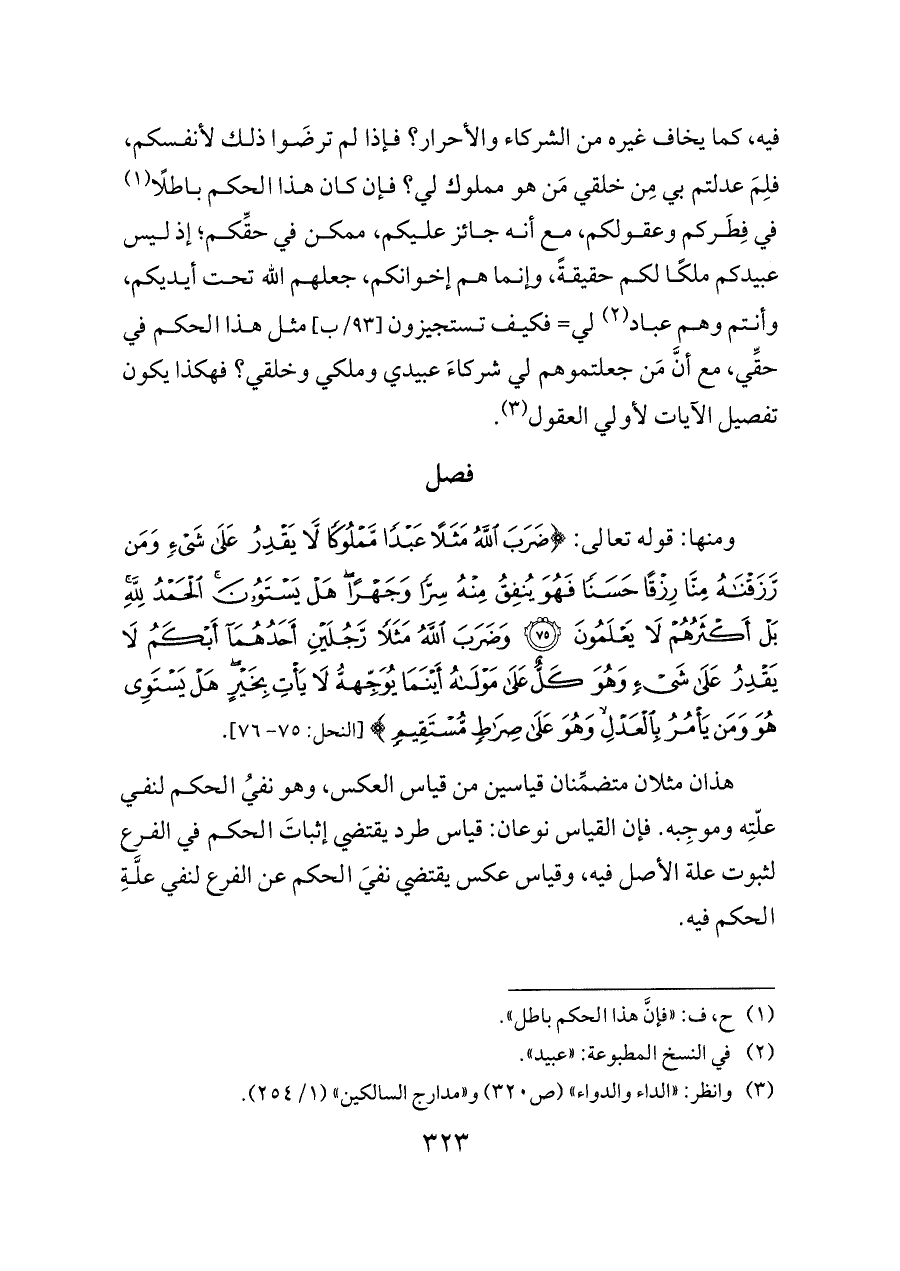 فيه، كما يخاف غيره من الشركاء والأحرار؟ فإذا لم ترضَوا ذلك لأنفسكم،
فلِمَ عدلتم بي مِن خلقي مَن هو مملوك لي؟ فإن كان هذا الحكم باطلًا(١)
في فِطَركم وعقولكم، مع أنه جائز عليكم، ممكن في حقِّكم؛ إذ ليس
عبيدكم ملكًا لكم حقيقةً، وإنما هم إخوانكم، جعلهم الله تحت أيديكم،
وأنتم وهم عباد(٢) لي= فكيف تستجيزون [٩٣/ ب] مثل هذا الحكم في
حقِّي، مع أنَّ مَن جعلتموهم لي شركاءَ عبيدي وملكي وخلقي؟ فهكذا يكون
تفصيل الآيات لأولي العقول(٣).
فصل
ومنها: قوله تعالى: ﴿ضَرَبَ ٱللَّهُ مَثَلًا عَبْدًا مَّمْلُوكًا لَّا يَقْدِرُ عَلَىٰ شَىْءٍ وَمَن
رَّزَقْنَٰهُ مِنَّا رِزْقًا حَسَنًا فَهُوَ يُنفِقُ مِنْهُ سِرًّا وَجَهْرًا ۖ هَلْ يَسْتَوُۥنَ ۚ ٱلْحَمْدُ لِلَّهِ ۚ
بَلْ أَكْثَرُهُمْ لَا يَعْلَمُونَ ٧٥ وَضَرَبَ ٱللَّهُ مَثَلًا رَّجُلَيْنِ أَحَدُهُمَآ أَبْكَمُ لَا
يَقْدِرُ عَلَىٰ شَىْءٍ وَهُوَ كَلٌّ عَلَىٰ مَوْلَىٰهُ أَيْنَمَا يُوَجِّههُّ لَا يَأْتِ بِخَيْرٍ ۖ هَلْ يَسْتَوِى
هُوَ وَمَن يَأْمُرُ بِٱلْعَدْلِ ۙ وَهُوَ عَلَىٰ صِرَٰطٍ مُّسْتَقِيمٍ﴾ [النحل: ٧٥- ٧٦].
هذان مثلان متضمِّنان قياسين من قياس العكس، وهو نفيُ الحكم لنفي
علّتِه وموجِبه. فإن القياس نوعان: قياس طرد يقتضي إثباتَ الحكم في الفرع
لثبوت علة الأصل فيه، وقياس عكس يقتضي نفيَ الحكم عن الفرع لنفي علَّةِ
الحكم فيه.
(١) ح، ف: «فإنَّ هذا الحكم باطل».
(٢) في النسخ المطبوعة: «عبيد».
(٣) وانظر: «الداء والدواء» (ص٣٢٠) و«مدارج السالكين» (١/ ٢٥٤).
٣٢٣